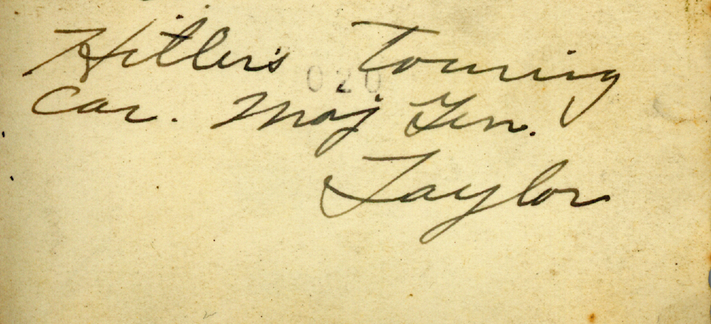 Hitler's Touring
020
Car. Maj Gen.
Taylor